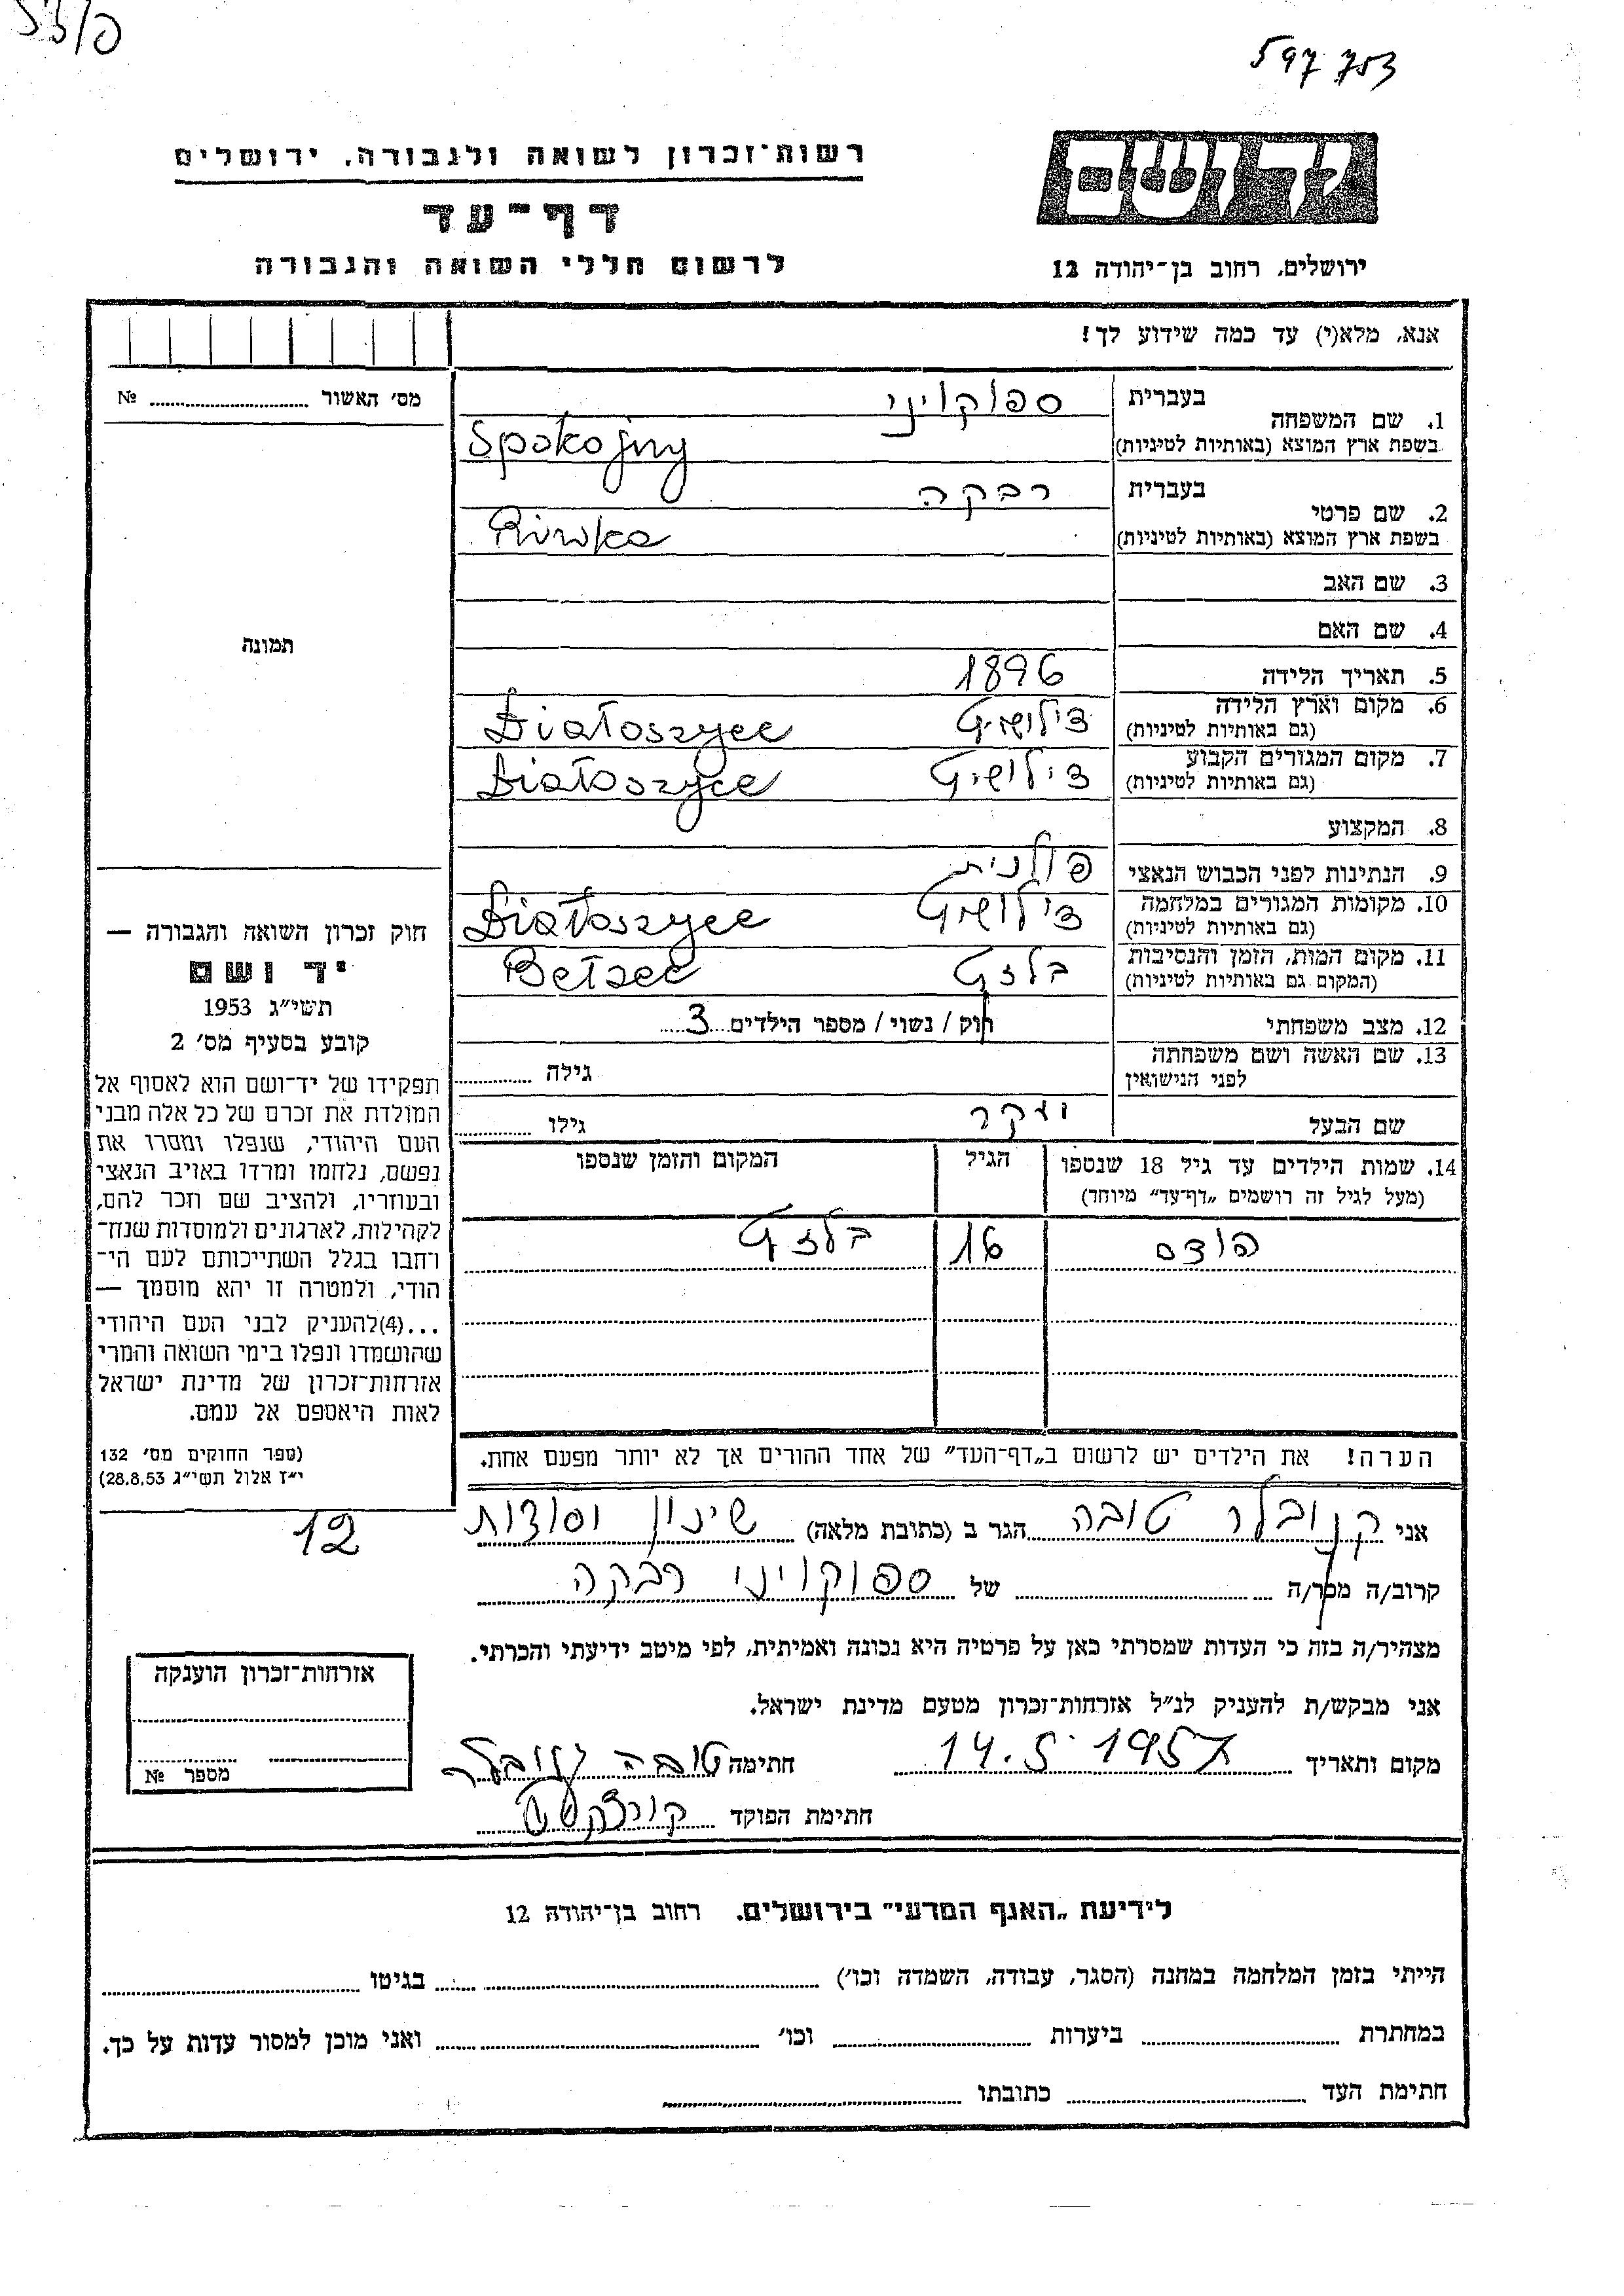 597 753
יד ושם
רשות־זכרון לשואה ולגבורה, ירושלים
דף־עד
לרשום חללי השואה והגבורה
ירושלים, רחוב בן־יהודה 12
אנא, מלא(י) עד כמה שידוע לך!
מס׳ האשור № 
תמונה
חוק זכרון השואה והגבורה —
יד ושם
תשי״ג 1953
קובע בסעיף מס׳ 2
תפקידו של יד־ושם הוא לאסוף אל
המולדת את זכרם של כל אלה מבני
העם היהודי, שנפלו ומסרו את
נפשם, נלחמו ומרדו באויב הנאצי
ובעוזריו, ולהציב שם וזכר להם,
לקהילות, לארגונים ולמוסדות שנח־
רחבו בגלל השתייכותם לעם הי־
הודי, ולמטרה זו יהא מוסמך —
...(4)להעניק לבני העם היהודי
שהושמדו ונפלו בימי השואה והמרי
אזרחות־זכרון של מדינת ישראל
לאות היאספם אל עמם.
(ספר החוקים מס׳ 132
י״ז אלול תשי״ג 28.8.53)
1. שם המשפחה בעברית ספוקויני
בשפת ארץ המוצא (באותיות לטיניות) Spokojny
2. שם פרטי בעברית רבקה
בשפת ארץ המוצא (באותיות לטיניות) Riwka
3. שם האב
4. שם האם
5. תאריך הלידה 1896
6. מקום וארץ הלידה
(גם באותיות לטיניות) Działoszyce
7. מקום המגורים הקבוע
(גם באותיות לטיניות) Działoszyce
8. המקצוע
9. הנתינות לפני הכבוש הנאצי פולנית
10. מקומות המגורים במלחמה
(גם באותיות לטיניות) Działoszyce
11. מקום המות, הזמן והנסיבות
(המקום גם באותיות לטיניות) בלזץ Bełzec
12. מצב משפחתי רוק / נשוי / מספר הילדים 3
13. שם האשה ושם משפחתה
לפני הנישואין גילה
שם הבעל גילו
14. שמות הילדים עד גיל 18 שנספו הגיל המקום והזמן שנספו
(מעל לגיל זה רושמים „דף־עד״ מיוחד)
הודס 16 בלזץ
הערה! את הילדים יש לרשום ב„דף־העד״ של אחד ההורים אך לא יותר מפעם אחת.
אני קנובלר טובה הגר ב (כתובת מלאה) שיכון וסודות
12
קרוב/ה מכר/ה של ספוקויני רבקה
מצהיר/ה בזה כי העדות שמסרתי כאן על פרטיה היא נכונה ואמיתית, לפי מיטב ידיעתי והכרתי.
אני מבקש/ת להעניק לנ״ל אזרחות־זכרון מטעם מדינת ישראל.
מקום ותאריך 14.5.1957 חתימה טובה קנובלר
חתימת הפוקד
אזרחות־זכרון הוענקה
מספר №
לידיעת „האגף המדעי״ בירושלים, רחוב בן־יהודה 12
הייתי בזמן המלחמה במחנה (הסגר, עבודה, השמדה וכו׳) בגיטו
במחתרת ביערות וכו׳ ואני מוכן למסור עדות על כך.
חתימת העד כתובתו